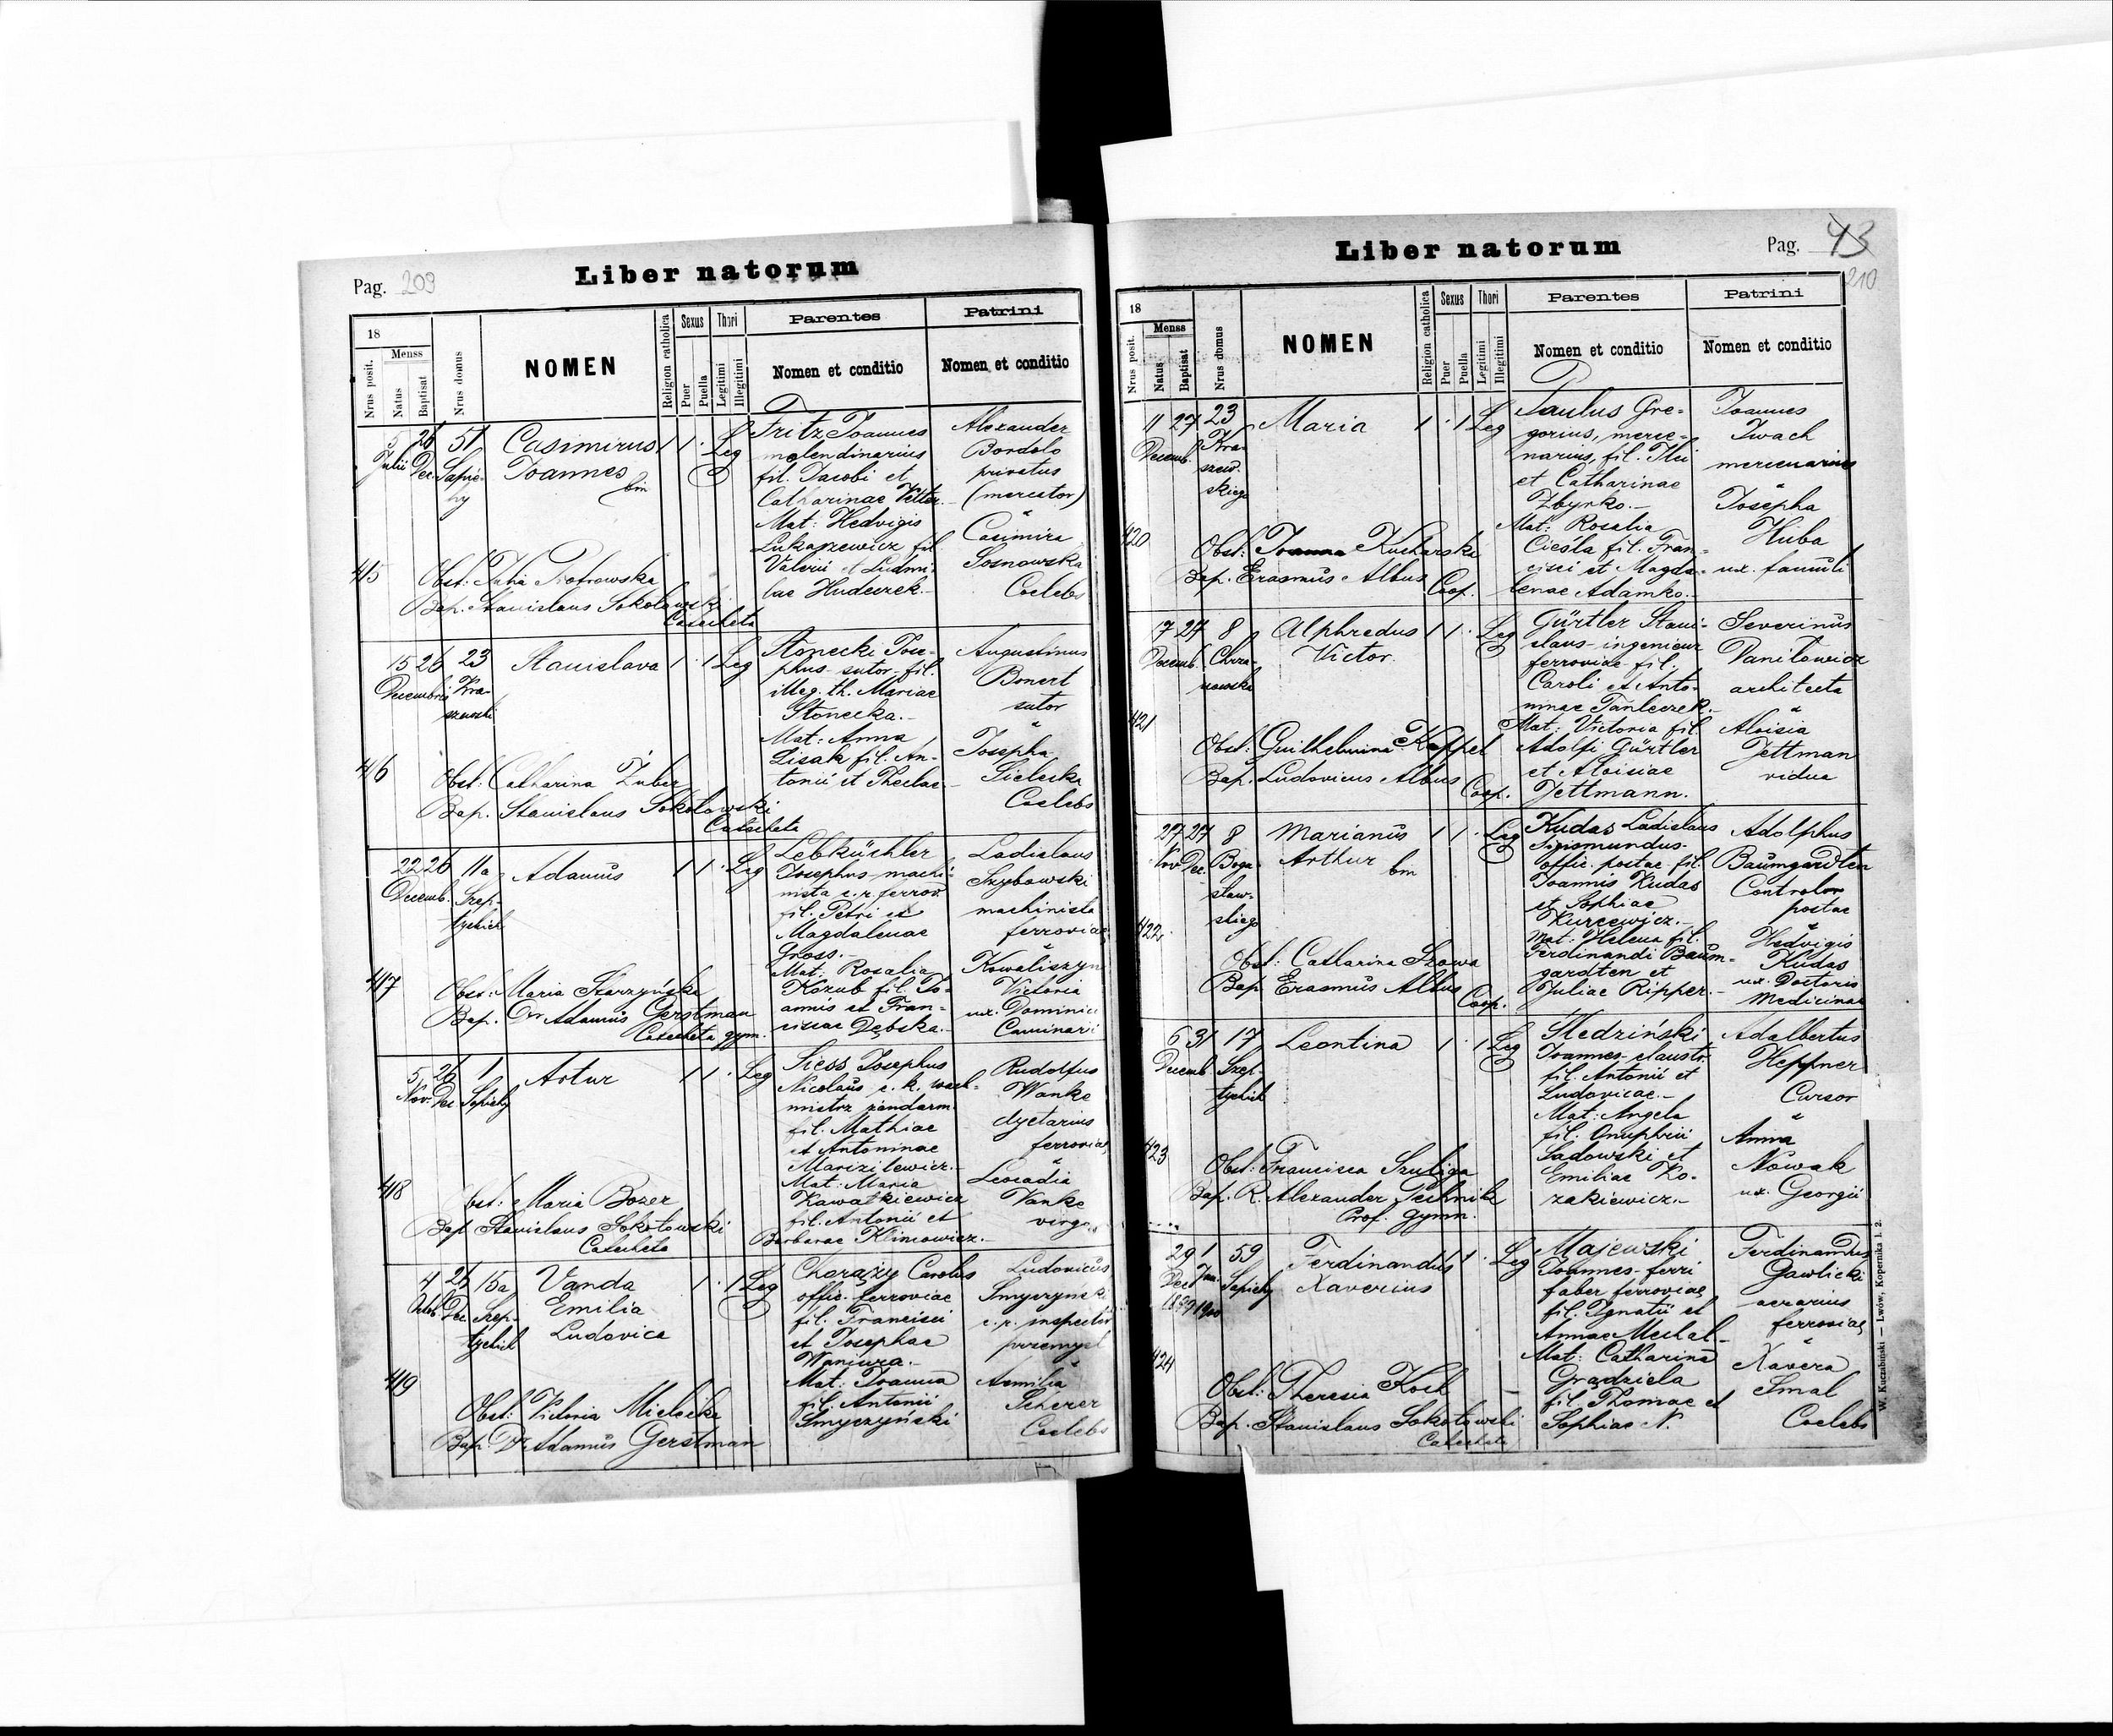 Pag. 209
Liber natorum
18
Nrus posit.
Menss
Natus
Baptisat
Nrus domus
NOMEN
Religion catholica
Sexus
Puer
Puella
Thori
Legitimi
Illegitimi
Parentes
Nomen et conditio
Patrini
Nomen et conditio
5 26 51 Casimirus 1 1 . Leg
Julii Dec Sapie-
hy
Joannes
bm
Fritz Joannes
molendinarius
fil. Jacobi et
Catharinae Vetter
Mat: Hedvigis
Lukaszewicz fil
Valerii et Ludmi-
lae Hudeczek.-
Alexander
Bordolo
privatus
(mercator)
Casimira
Sosnowska
Coelebs
415
Obst: Julia Piotrowska
Bap. Stanislaus Sokołowski
Catecheta
15 26 23 Stanislava 1 . 1 Leg
Decembris Kra-
szewski
Słonecki Jose-
phus sutor fil.
illeg. th. Mariae
Słonecka.-
Mat: Anna
Lisak fil. An-
tonii et Theclae-
Augustinus
Bonert
sutor
Josepha
Sielecka
Coelebs
416
Obst: Catharina Zuber
Bap. Stanislaus Sokołowski
Catecheta
22 26 11a Adamus 1 1 . Leg
Decemb. Szep-
tyckich
Lebküchler
Josephus machi-
nista c.r. ferrov.
fil. Petri et
Magdalenae
Gross.-
Mat: Rosalia
Kozub fil. Jo-
annis et Fran-
ciscae Dębska.-
Ladislaus
Szybowski
machinista
ferroviae
Kowaliszyn
Victoria
ux. Dominici
Caminari
417
Obst: Maria Skarzyńska
Bap. Dr Adamus Gerstman
Catecheta gym.
5 26 1 Artur 1 1 . Leg
Nov. Dec Sapiehy
Siess Josephus
Nicolaus c. k. wach-
mistrz żandarm.
fil. Mathiae
et Antoninae
Marcizilewicz.-
Mat: Maria
Kawałkiewicz
fil. Antonii et
Barbarae Klimowicz.-
Rudolfus
Wanke
dyetarius
ferroviae
Leocadia
Wanke
virgo
418
Obst: Maria Bozer
Bap Stanislaus Sokołowski
Catecheta
4 26 15a Vanda 1 . 1 Leg
Octob. Dec Szep-
tyckich
Emilia
Ludovica
Chorąży Carolus
offic. ferroviae
fil. Francisci
et Josephae
Waniura.-
Mat: Joanna
fil. Antonii
Smyczyński
Ludovicus
Smyczyński
c.r. inspector
przemysł
Aemilia
Scherer
Coelebs
419
Obst: Victoria Mielecka
Bap. Dr Adamus Gerstman
Liber natorum
Pag. 43
210
18
Nrus posit.
Menss
Natus
Baptisat
Nrus domus
NOMEN
Religion catholica
Sexus
Puer
Puella
Thori
Legitimi
Illegitimi
Parentes
Nomen et conditio
Patrini
Nomen et conditio
11 27 23 Maria 1 . 1 Leg
Decemb. Kra-
szew-
skiego
Paulus Gre-
gorius, merce-
narius, fil. Ilei
et Catharinae
Zbyrko.-
Mat: Rosalia
Cieśla fil. Fran-
cisci et Magda-
lenae Adamko.-
Joannes
Iwach
mercenarius
Josepha
Huba
ux. famuli
420
Obst: Joanna Kucharski
Bap. Erasmus Albus Coop.
7 27 8 Alphredus 1 1 . Leg
Decemb. Chrza-
nowska
Victor
Gürtler Stani-
slaus ingenieur
ferroviae fil.
Caroli et Anto-
ninae Panleczek.-
Mat: Victoria fil.
Adolfi Gürtler
et Aloisiae
Jettmann.
Severinus
Daniłowicz
architecta
Aloisia
Jettman
vidua
421
Obst: Guilhelmina Kappel
Bap. Ludovicus Albus Coop.
27 27 8 Marianus 1 1 . Leg
Nov Dec. Bogu-
sław-
skiego
Arthur
bm
Kudas Ladislaus
Sigismundus
offic. postae fil.
Joannis Kudas
et Sophiae
Kurcewicz.-
Mat: Helena fil.
Ferdinandi Baum-
gardten et
Juliae Ripper.-
Adolphus
Baumgardten
Controlor
postae
Hedvigis
Kudas
ux. Doctoris
Medicinae
422
Obst: Catharina Szowa
Bap Erasmus Albus Coop.
6 31 17 Leontina 1 . 1 Leg
Decemb Szep-
tyckich
Śledziński
Joannes claustr.
fil. Antonii et
Ludovicae.-
Mat: Angela
fil. Onuphrii
Sadowski et
Emiliae Ko-
zakiewicz.-
Adalbertus
Heppner
Cursor
Anna
Nowak
ux. Georgii
423
Obst: Francisca Szuliga
Bap. R. Alexander Pechnik
Prof. gymn.
29 1 59 Ferdinandus 1 . Leg
Dec Jan. Sapiehy
1899 1900
Xaverius
Majewski
Joannes ferri
faber ferroviae
fil. Ignatii et
Annae Mechal-
Mat: Catharina
Grądziela
fil. Thomae et
Sophiae N.
Ferdinandus
Gawlicki
aerarius
ferroviae
Xavera
Smal
Coelebs
424
Obst: Theresia Koch
Bap. Stanislaus Sokołowski
Catecheta
W. Kuczabiński — Lwów, Kopernika l. 2.